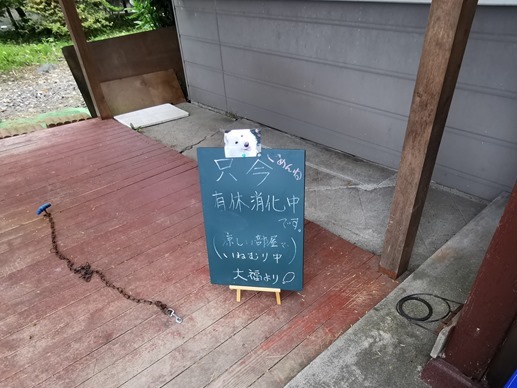 只今
ごめんね
有休消化中
です。
(涼しい部屋で
いねむり中)
大福より